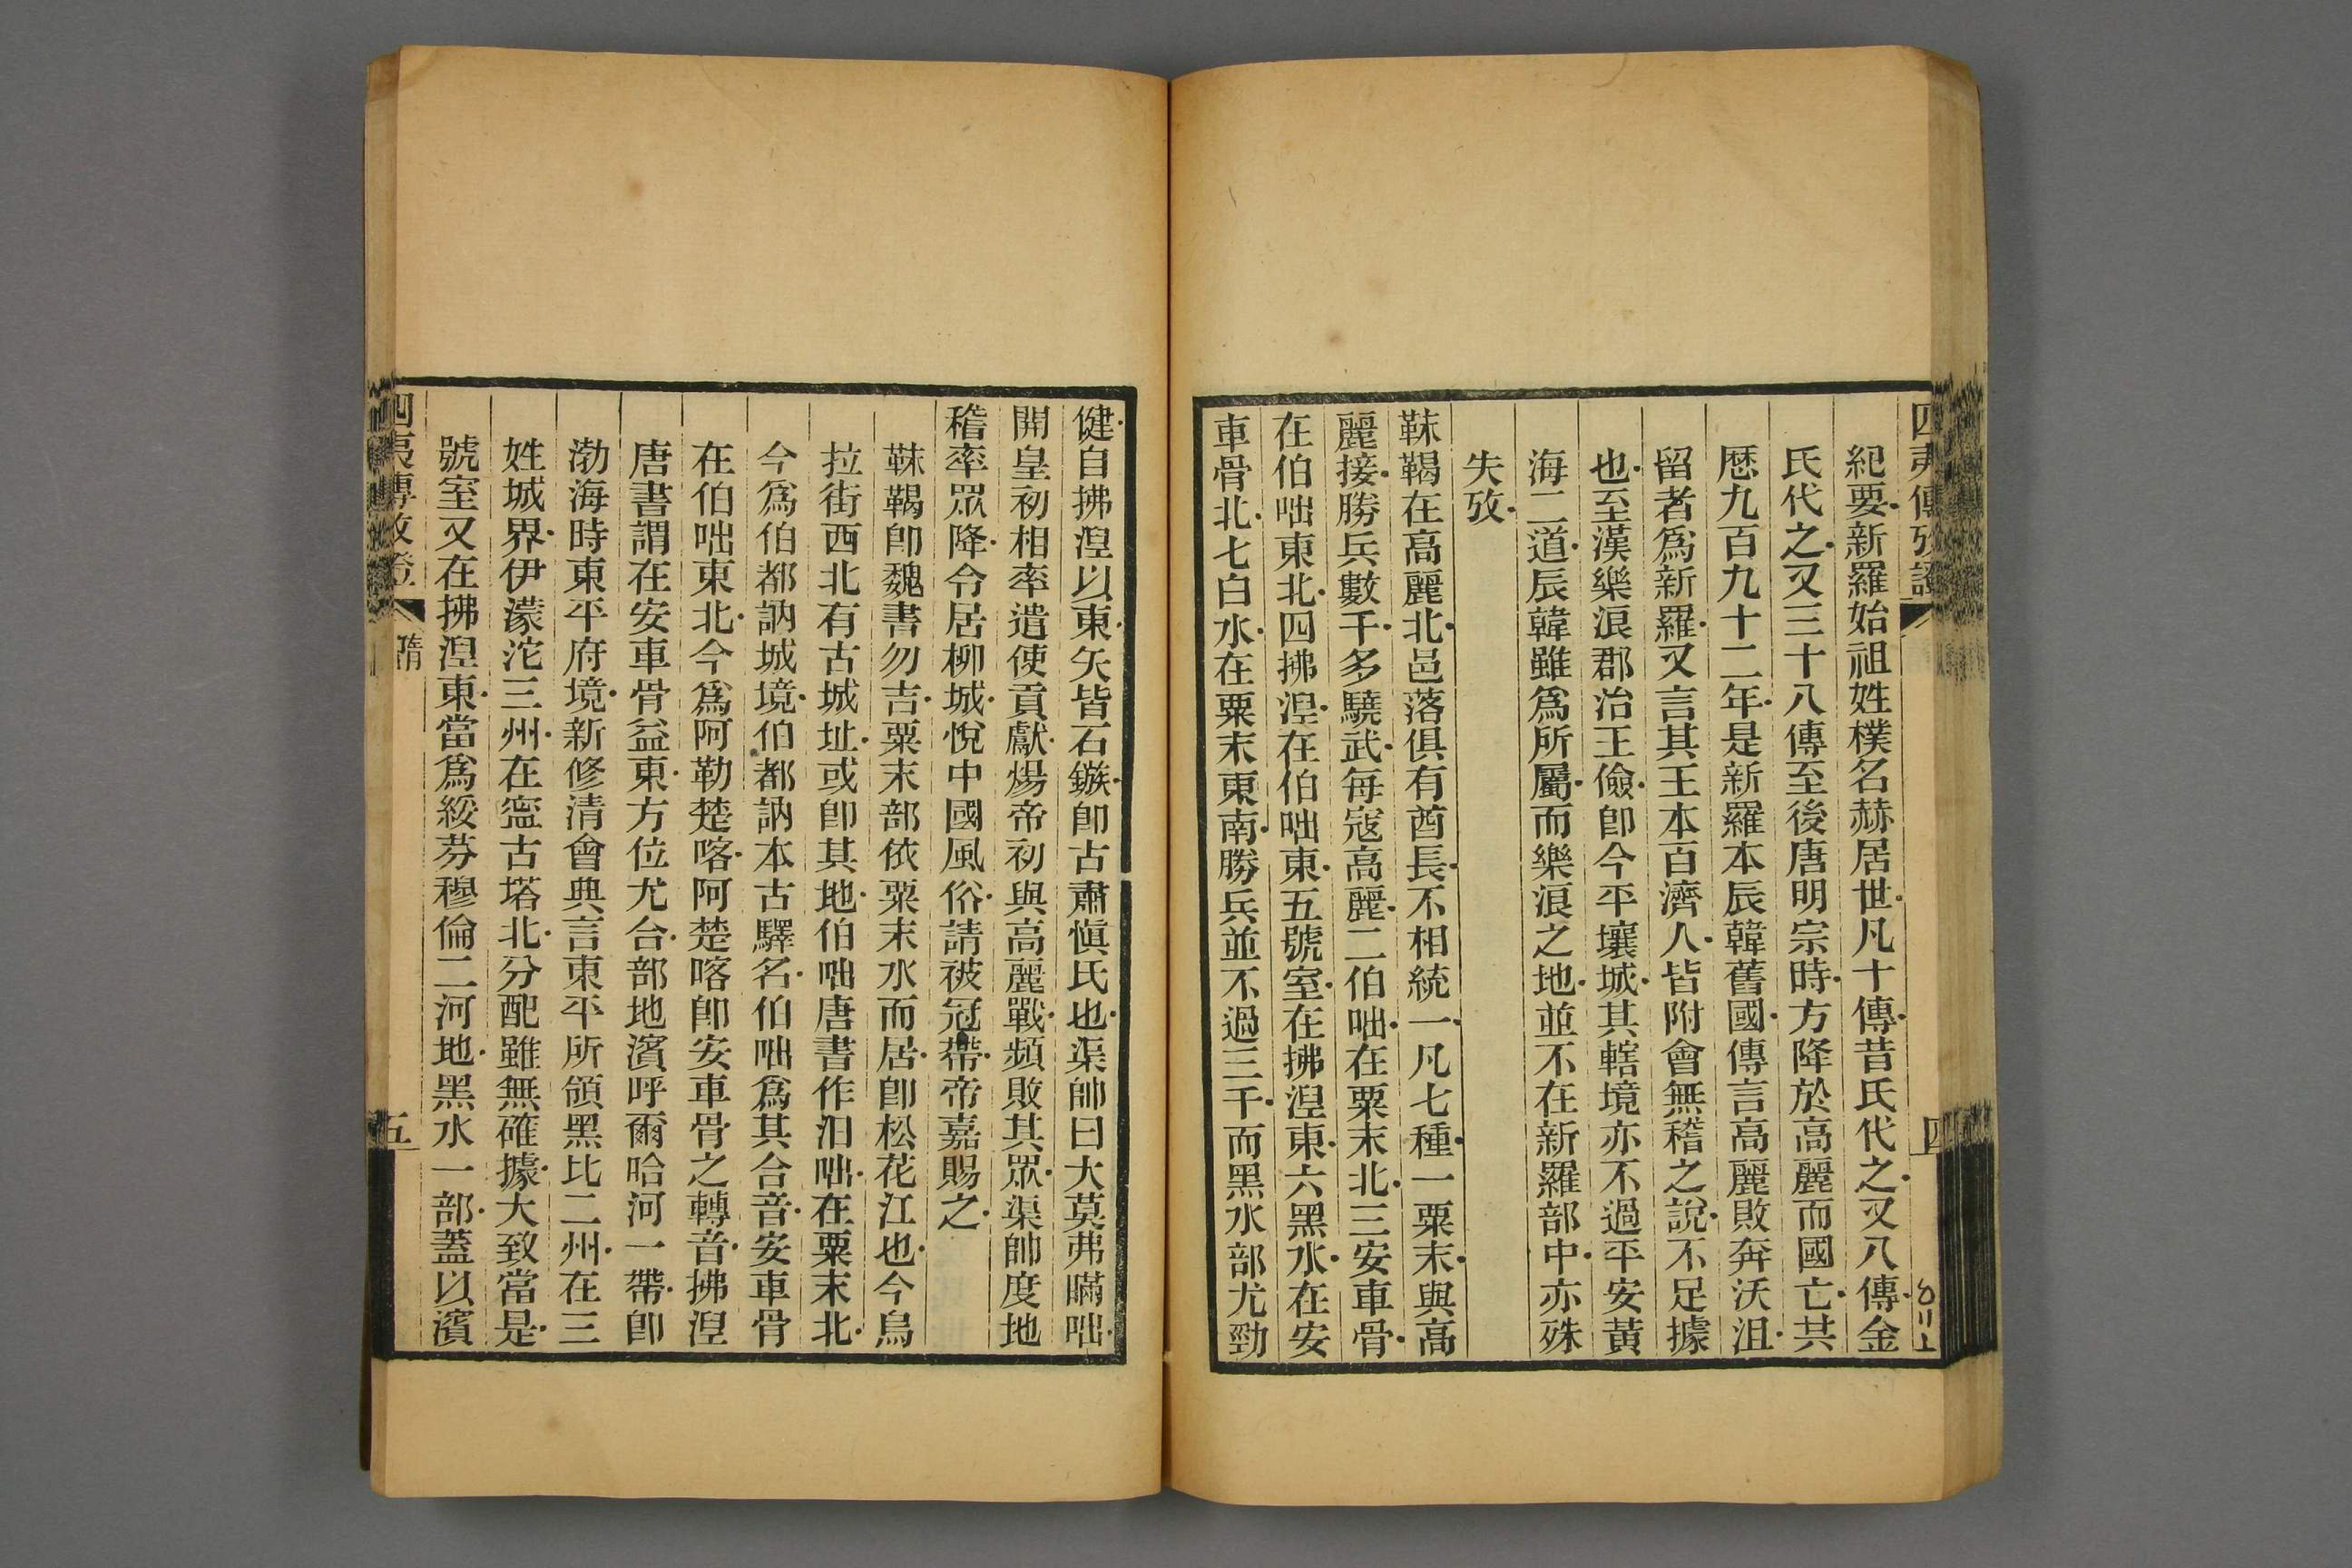 紀要新羅始祖姓樸名赫居世凡十傳昔氏代之又八傳金
氏代之又三十八傳至後唐明宗時方降於高麗而國亡共
歷九百九十二年是新羅本辰韓舊國傳言高麗敗奔沃沮
留者爲新羅又言其王本百濟人皆附會無稽之說不足據
也至漢樂浪郡治王儉即今平壤城其轄境亦不過平安黃
海二道辰韓雖爲所屬而樂浪之地並不在新羅部中亦殊
失攷
靺鞨在高麗北邑落俱有酋長不相統一凡七種一粟末與高
麗接勝兵數千多驍武每寇高麗二伯咄在粟末北三安車骨
在伯咄東北四拂湼在伯咄東五號室在拂湼東六黑水在安
車骨北七白水在粟末東南勝兵並不過三千而黑水部尤勁
健自拂湼以東矢皆石鏃即古肅愼氏也渠帥曰大莫弗瞞咄
開皇初相率遣使貢獻煬帝初與高麗戰頻敗其眾渠帥度地
稽率眾降令居柳城悅中國風俗請被冠帶帝嘉賜之
靺鞨即魏書勿吉粟末部依粟末水而居即松花江也今烏
拉街西北有古城址或即其地伯咄唐書作汩咄在粟末北
今爲伯都訥城境伯都訥本古驛名伯咄爲其合音安車骨
在伯咄東北今爲阿勒楚喀阿楚喀即安車骨之轉音拂湼
唐書謂在安車骨益東方位尤合部地濱呼爾哈河一帶即
渤海時東平府境新修清會典言東平所領黑比二州在三
姓城界伊濛沱三州在寧古塔北分配雖無確據大致當是
號室又在拂湼東當爲綏芬穆倫二河地黑水一部蓋以濱
四夷傳攷證
隋
五